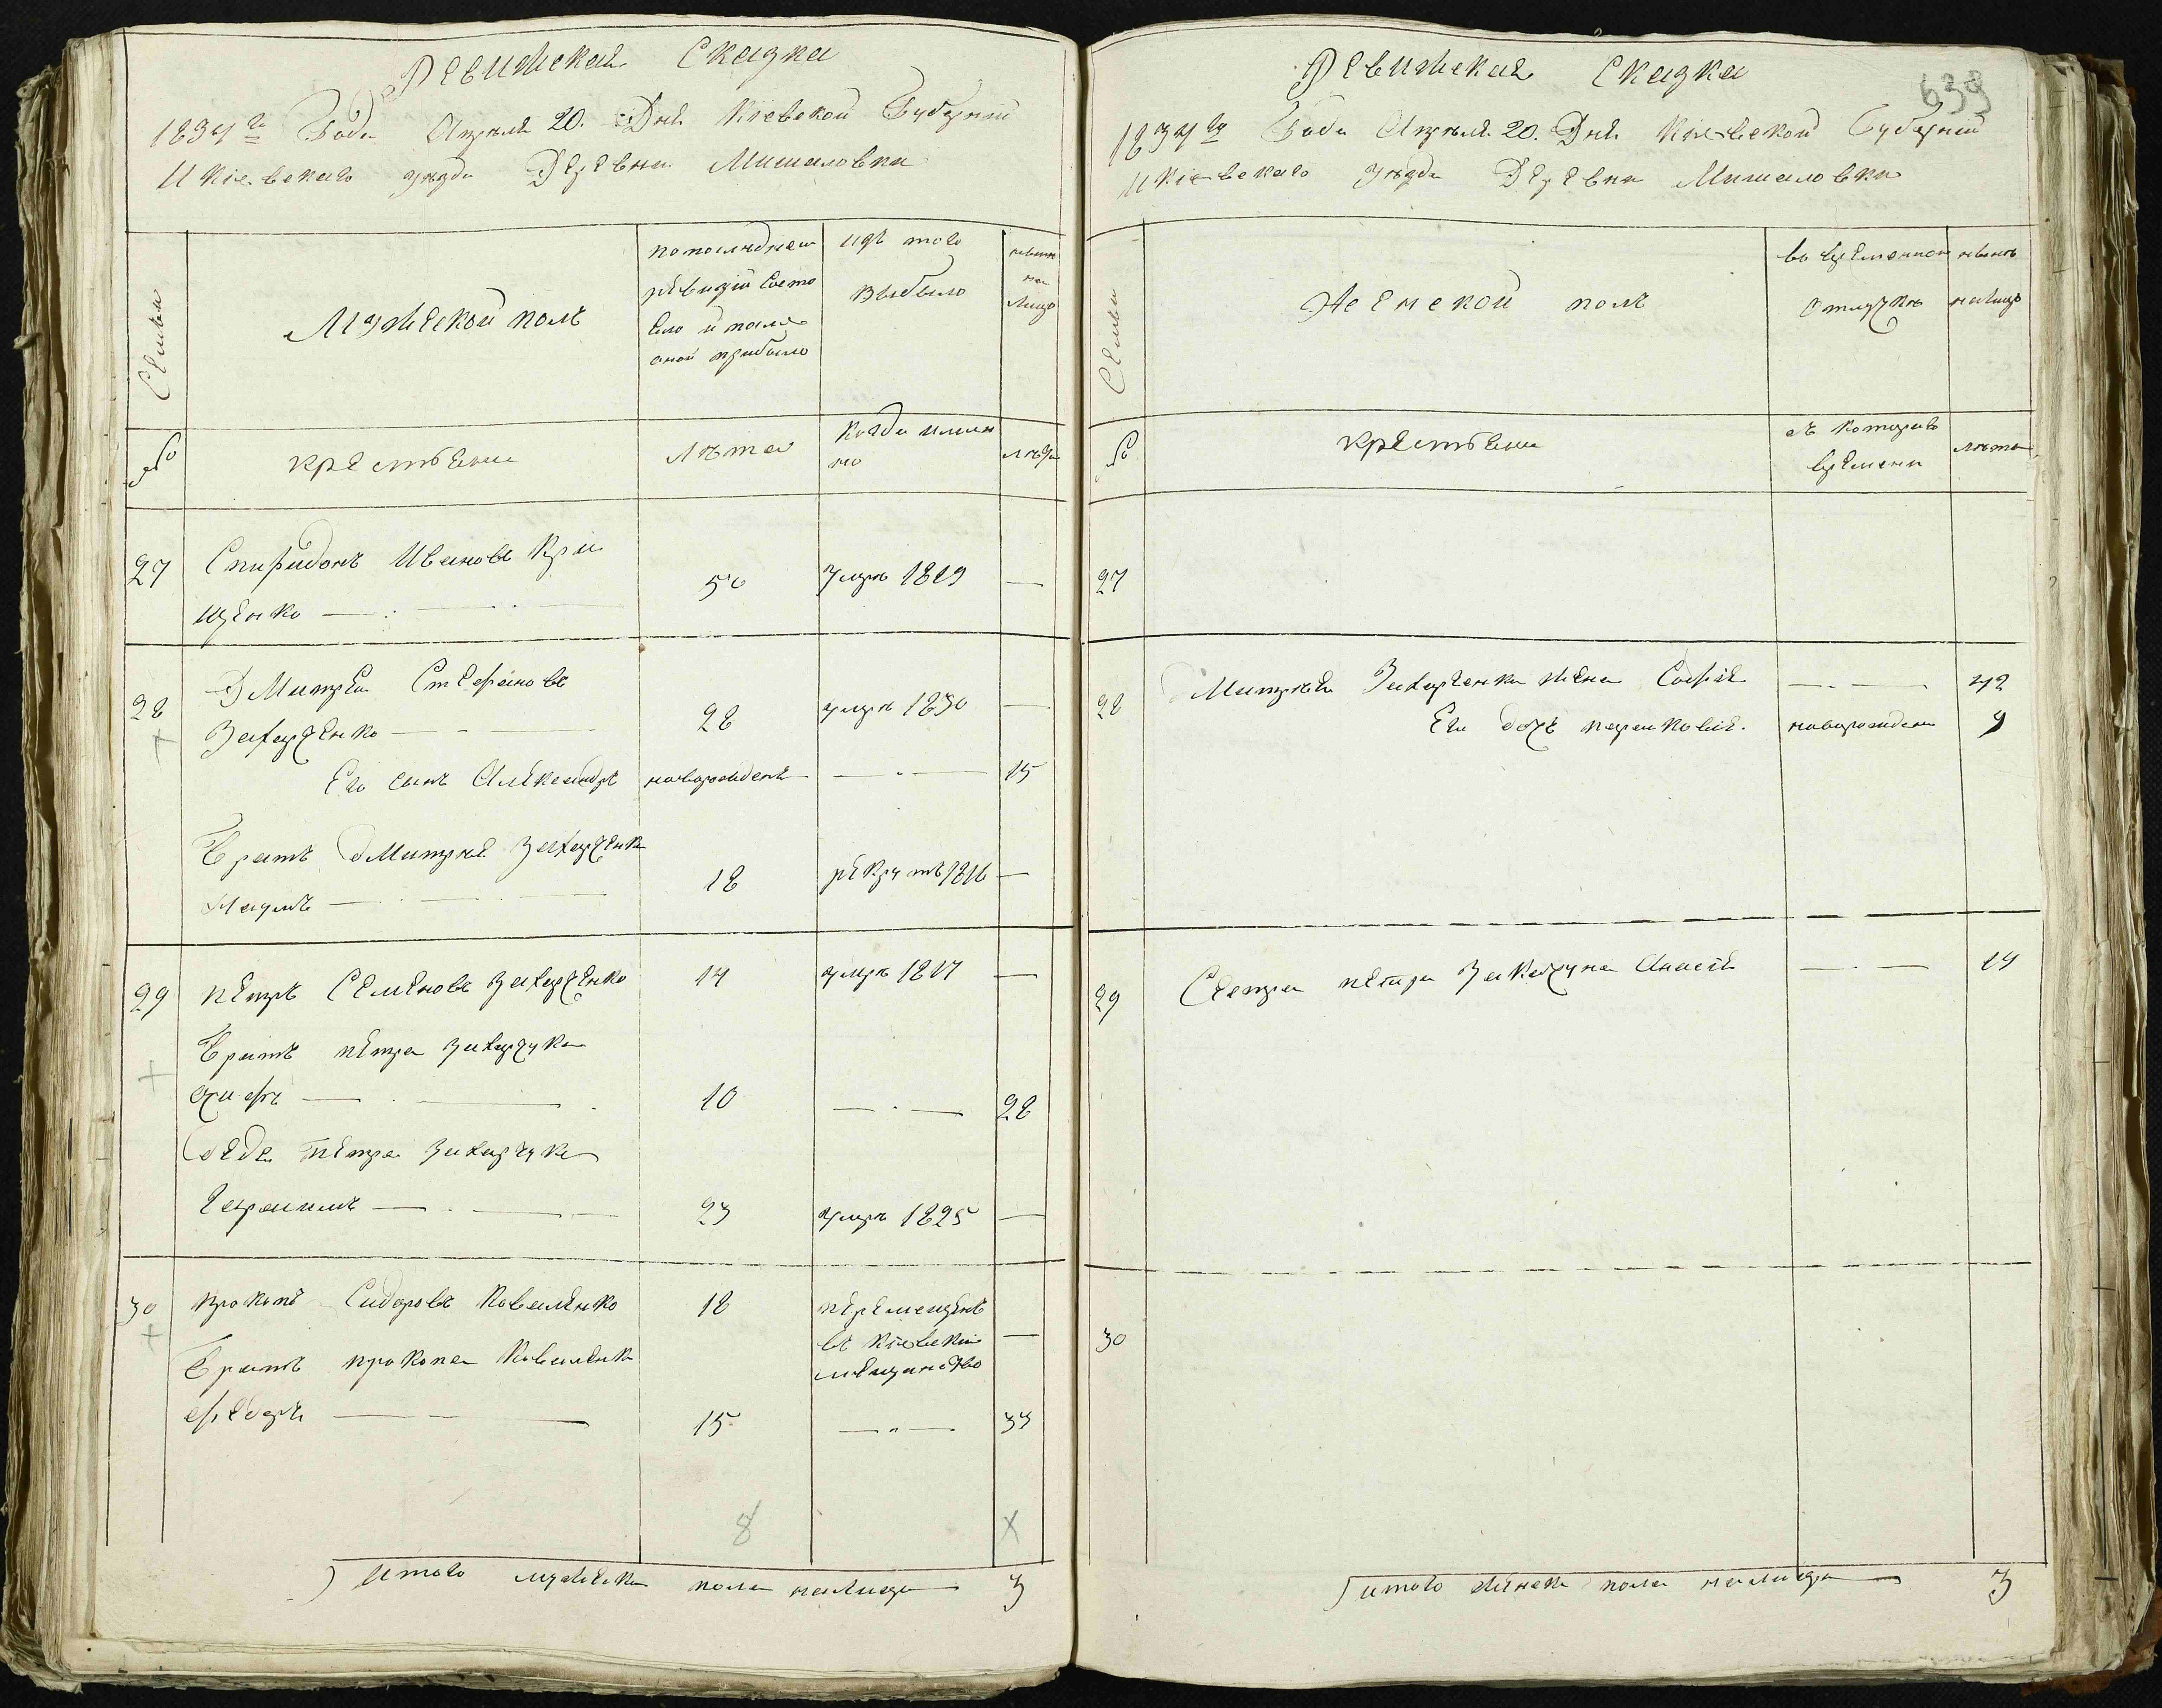 Ревижская Сказка
1834го Года Апреля 20. Дня Кіевской Губерніи
И Кіевскаго уезда Деревни Мишаловки
Семьи
Мужеской полъ
по последнеи
ревизіи состо
яло и после
оной прибыло
изъ того
выбыло
ныне
на
лицо
№
крестьяне
Лета
Когда имян
но
лета
27
Спиридонъ Ивановъ Гри
щенко
50
умре 1829
28
Дмитреи Стефановъ
Захарченко
28
умре 1830
Его сынъ Александръ
новорожденъ
15
Братъ дмитрея Захарченка
Наумъ
18
рекрутъ 1816
29
петръ Семеновъ Захарченко
14
умре 1817
Братъ петра Захарчука
10
28
дядя петра Захарчука
Герасимъ
23
умре 1825
30
прокопъ Сидоровъ Коваленко
18
перемещенъ
въ Кіевския
мещанство
Братъ прокопа Коваленка
федоръ
15
33
8
итого мужеска пола налицо
3
639
Ревижская Сказка
1834го Года Апреля 20. Дня Кіевской Губерніи
И Кіевскаго уезда Деревни Мишаловки
Семьи
Женской полъ
во временной
отлучке
ныне
налицо
№
крестьяне
съ котораго
времени
лета
27
28
Дмитрея Захарченка жена Софія
42
Его дочь парасковия.
новорожденна
9
29
Сестра петра Захарчука
14
30
итого женска пола налицо
3